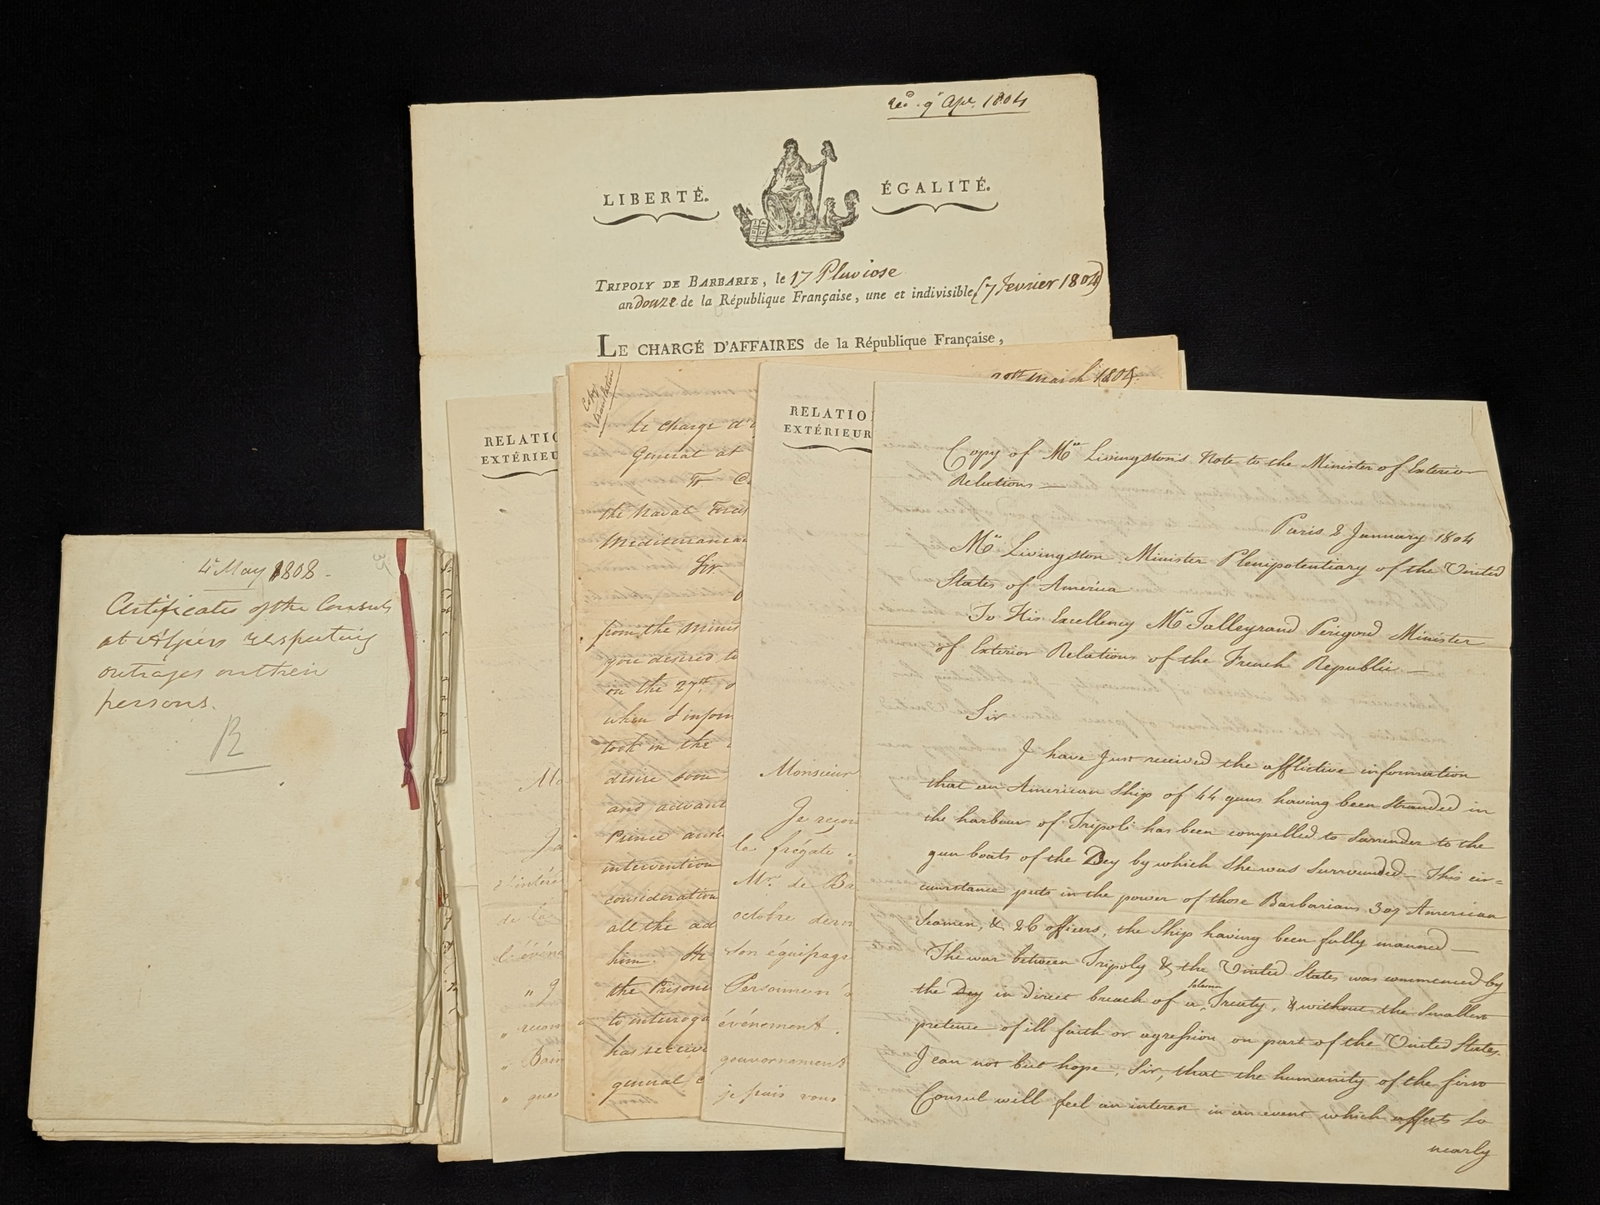 recd. 9 Apl. 1804
LIBERTÉ. ÉGALITÉ.
TRIPOLY DE BARBARIE, le 17 Pluviose
an Douze de la République Française, une et indivisible, (7 fevrier 1804)
LE CHARGÉ D'AFFAIRES de la République Française,
RELATIO
EXTÉRIEU
Mo
Ja
l'événe
Bain
que
Copy
translation
20th March 1804.
Le chargé d'
General at
the Naval Forces
Mediterranean
Sir
from the Minis
you desired to
on the 27th
when I inform
took in the
desire soon
and advant
Prince
intervention
consideration
all the ad
him. He
the Prisone
to interoga
has receive
general c
RELATIO
EXTÉRIEUR
Monsieur
Je reçoi
la frégate
Mr. de Ba
octobre dern
son équipage
Personne n'a
événement.
gouvernement
je puis vous
Copy of Mr. Livingston's Note to the Minister of Exterior
Relations —
Paris 2 January 1804
Mr. Livingston Minister Plenipotentiary of the United
States of America
To His Excellency Mr. Talleyrand Perigord Minister
of Exterior Relations of the French Republic —
Sir
I have just received the afflictive information
that an American Ship of 44 guns having been stranded in
the harbour of Tripoli has been compelled to surrender to the
gun boats of the Dey by which she was surrounded — This cir=
cumstance puts in the power of those Barbarians 307 American
Seamen, & 26 officers, the Ship having been fully manned —
The war between Tripoly & the United States was commenced by
the Dey in direct breach of a solemn Treaty, & without the smallest
pretence of ill faith or agression on part of the United States.
I can not but hope, Sir, that the humanity of the first
Consul will feel an interest in an event which affects so
nearly
4 May 1808 -
Certificate of the Consuls
at Algiers respecting
outrages on their
persons.
R